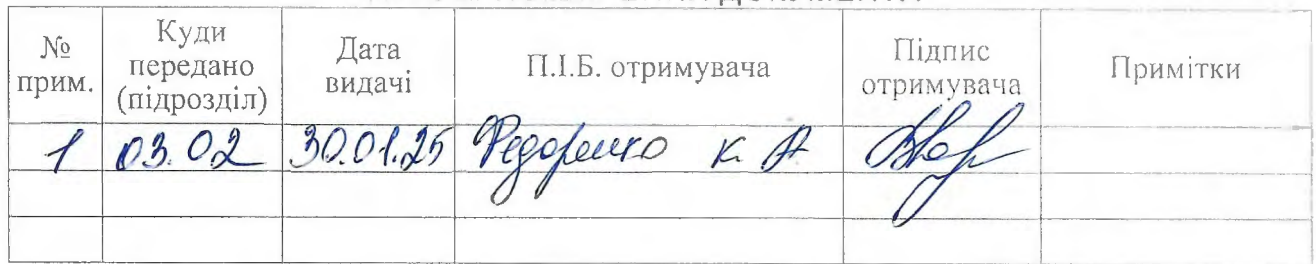 № прим. Куди передано (підрозділ) Дата видачі П.І.Б. отримувача Підпис отримувача Примітки
1 03.02 30.01.25 Федоренко К А